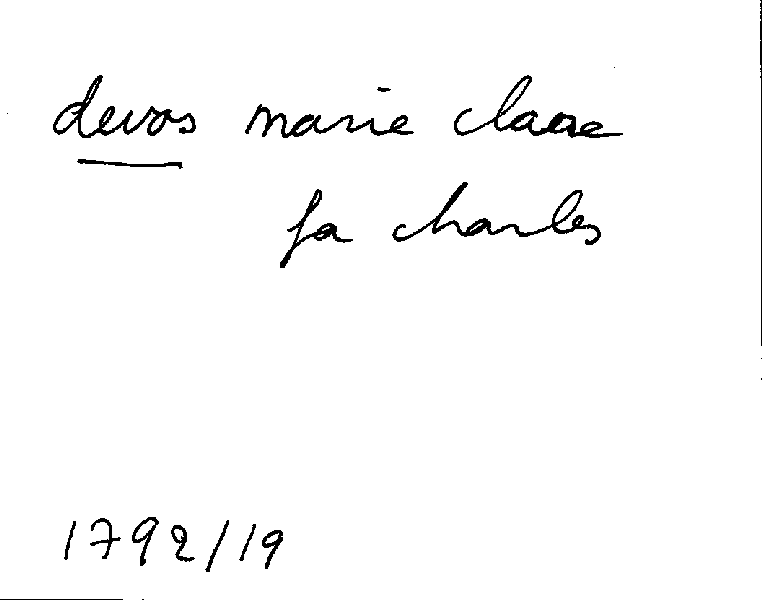 devos marie claire
fa charles
1792/19